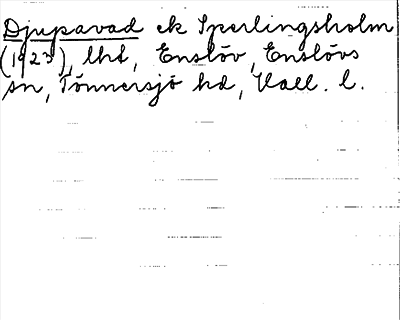 Djupavad ek Sperlingsholm
(1923), lht, Enslöv, Enslövs
sn, Tönnersjö hd, Hall. l.